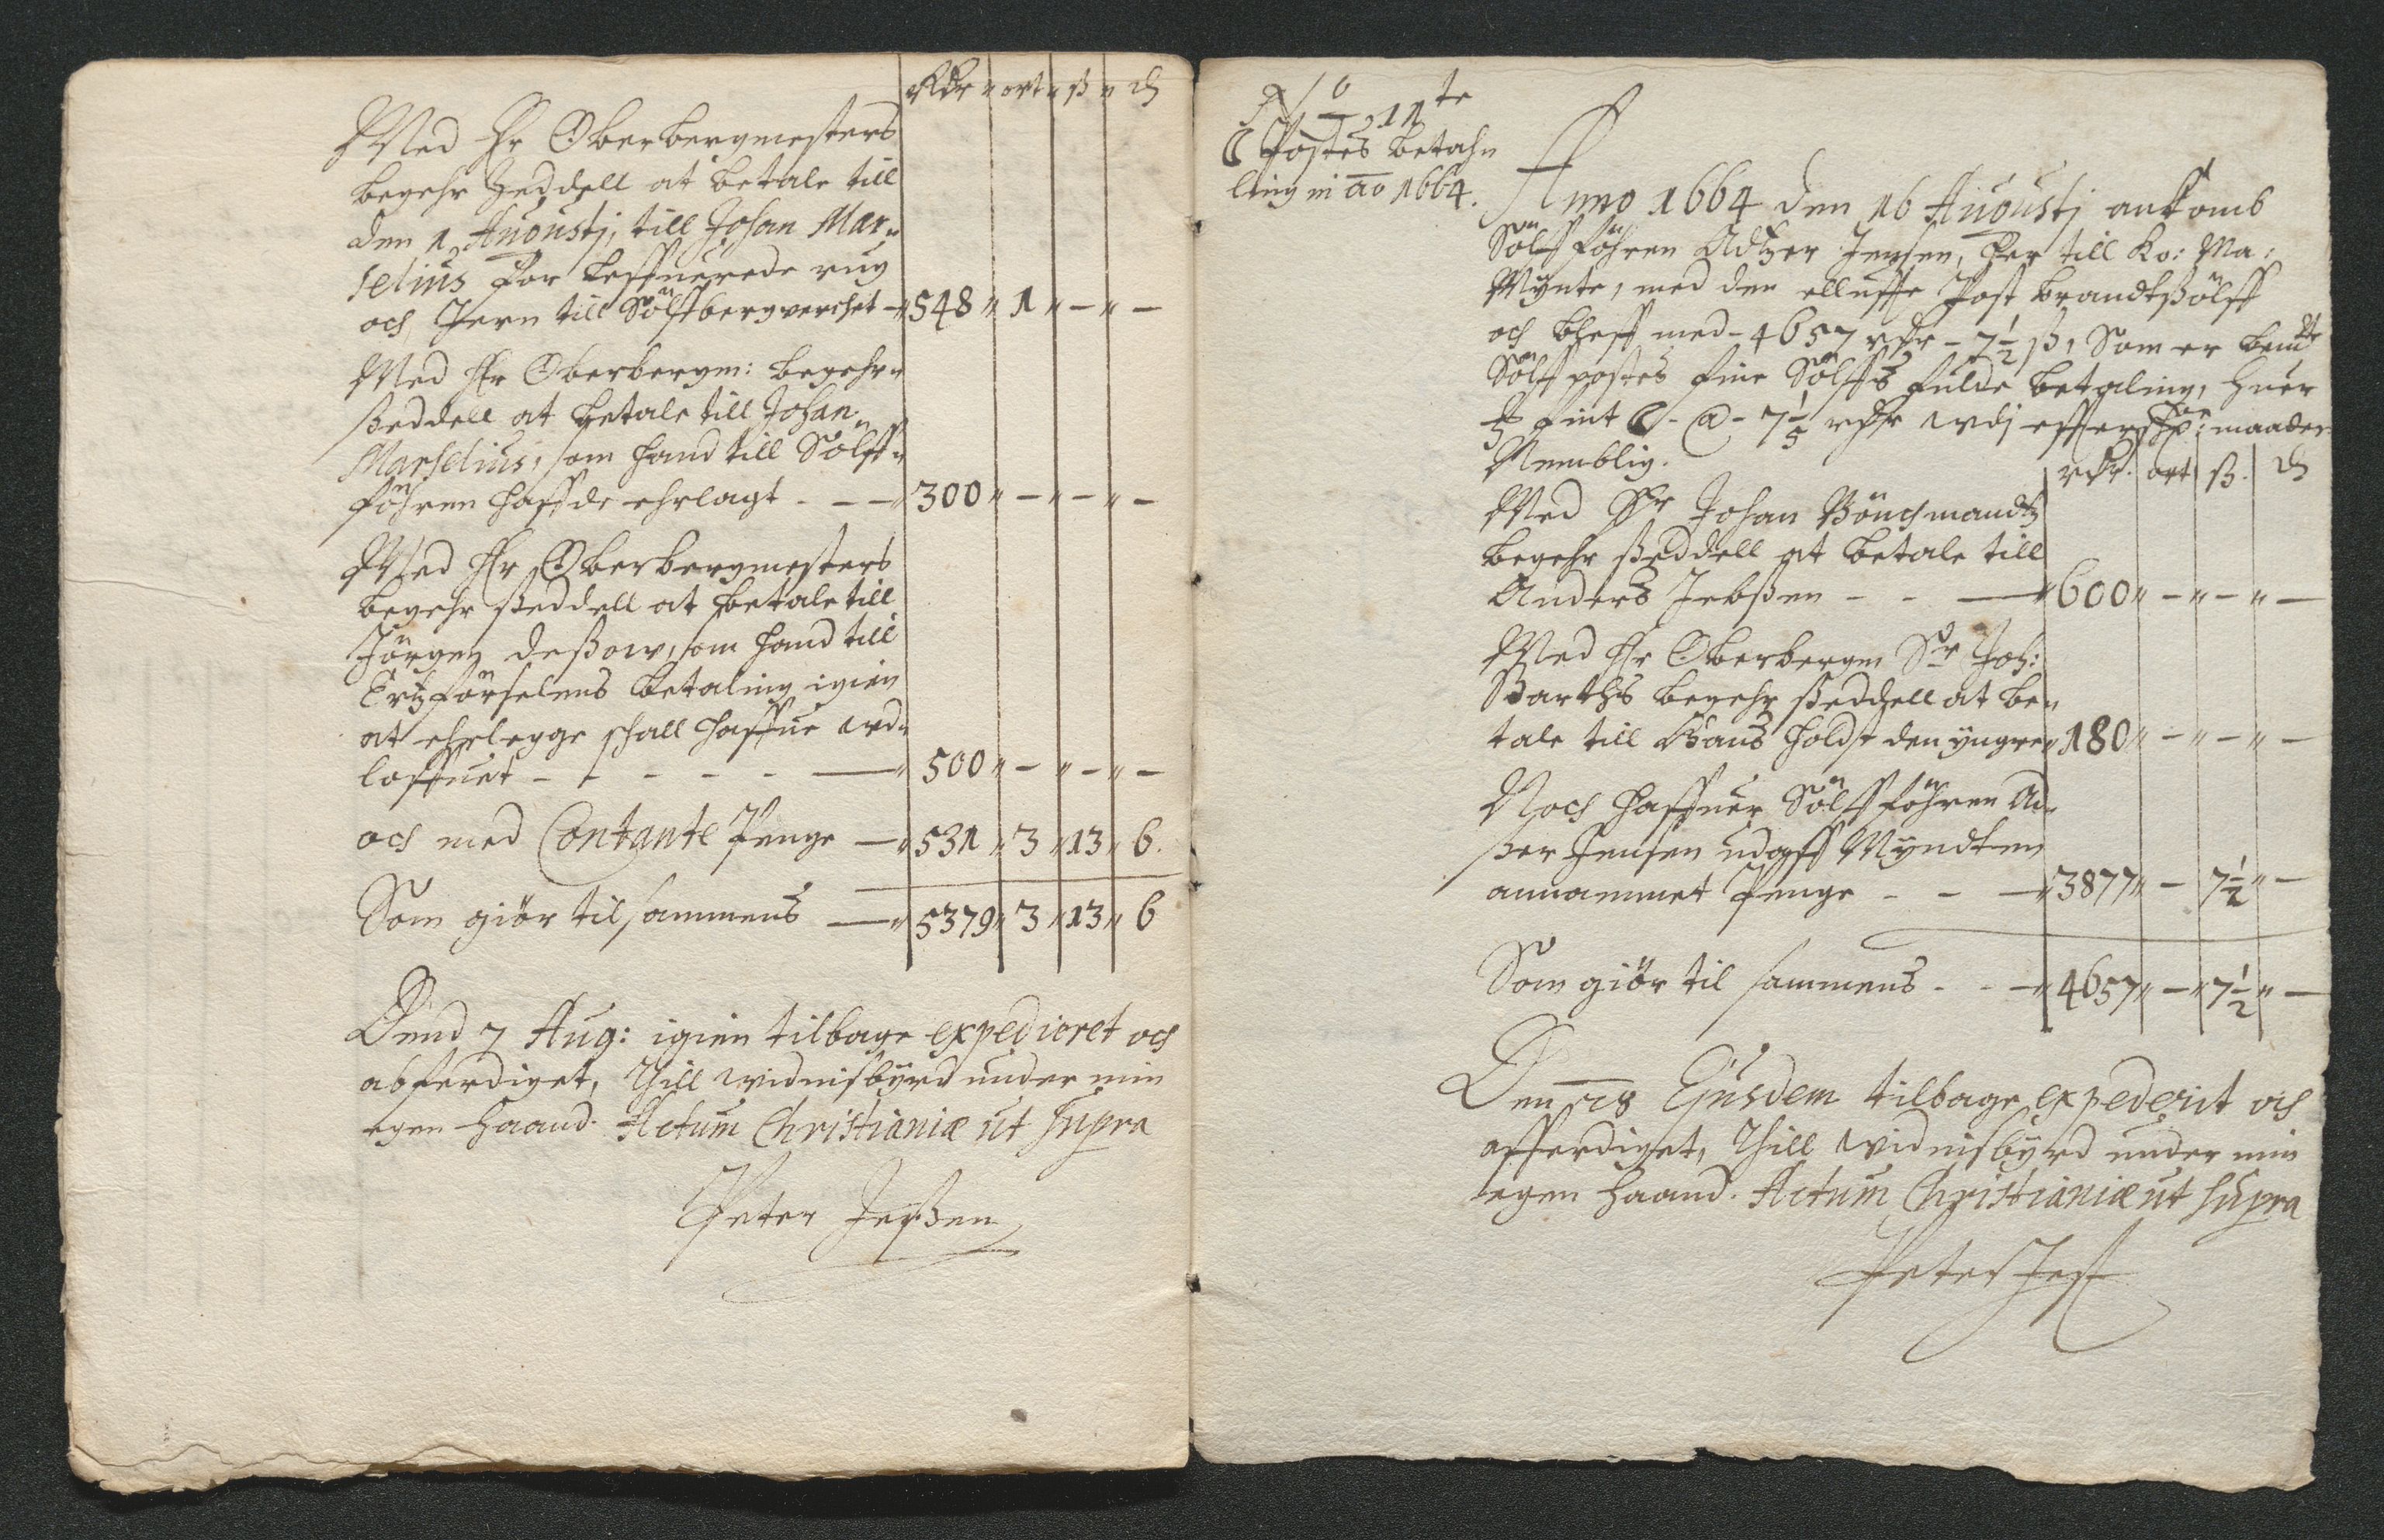 Rdr " ort " ß " ₰
Med Hr Oberbergmesters
begehr Zeddell at betale till
den 1 Augustj, till Johan Mar=
selius for leffuerede rug
och Jern till Sölffbergverchet — " 548 " 1 " – " –
Med Hr Oberbergm: begehr=
ßeddell at betale till Johan
Marselius, som hand till Sölff=
föhren haffde ehrlagt - - — " 300 " – " – " –
Med Hr Oberbergmesters
begehr ßeddell at betale till
Jörgen Deßow, som hand till
Ertzförselens betaling igien
at ehrlegge schall haffue vd=
loffuet - - - - - — " 500 " – " – " –
och med Contante Penge — " 531 " 3 " 13 " 6.
Som giör tilsammens — " 5379 " 3 " 13 " 6
Dend 7 Aug: igien tilbage expedieret och
abferdiget, Till vidnisbyrd under min
egen haand. Actum Christianiæ ut supra
Peter Jeßen
No 11te
Postes betah=
ling in ao 1664.
Anno 1664 den 16 Augustj ankomb
Sölffföhren Adtzer Jensen, her till Ko: Ma:
Mynte, med den elluffte Post brandtßölff
och bleff med - 4657 rdr - 7½ ß, Som er bemte
Sölffpostes fine Sölffs fulde betaling, huer
fint - @ - 7 1/5 rdr vdj effterschr: maader
Nemblig.
rdr. ort ß. ₰
Med Hr Johan Böuchmandtz
begehr ßeddell at betale till
Anders Jebßen - - — " 600 " – " – " –
Med Hr Oberbergm Sr Joh:
Barths begehr ßeddell at be=
tale till Hans Holdst den yngre " 180 " – " – " –
Noch haffuer Sölffföhren Ad=
ßer Jensen udaff Myndten
annammet Penge - - — " 3877 " – 7½ " –
Som giör til sammens - - — " 4657 " – " 7½ " –
Den 18 Ejusdem tilbage expederit och
afferdiget, Till vidnisbyrd under min
egen haand. Actum Christianiæ ut supra
Peter Jeß